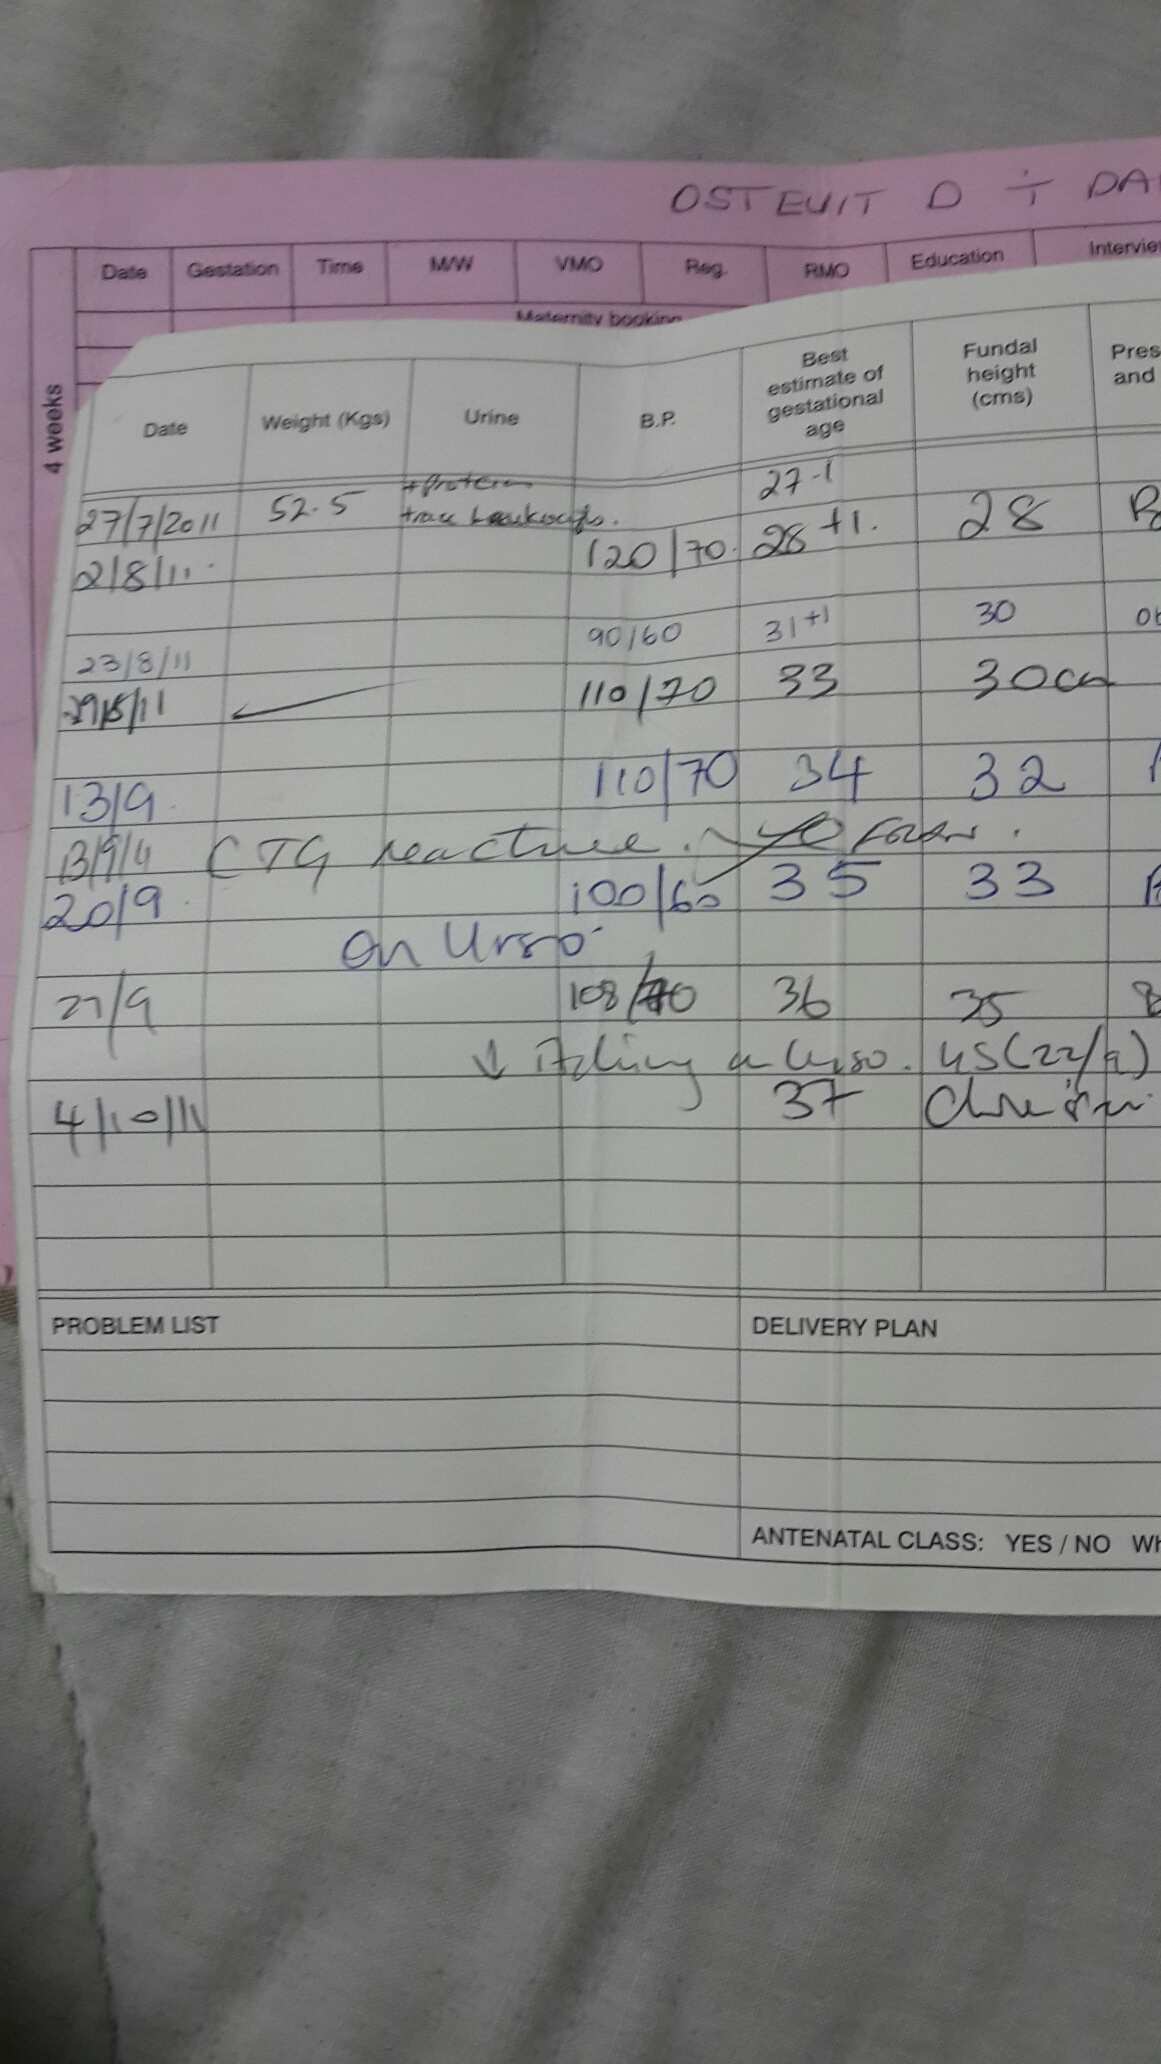 OSTEVIT D
4 weeks
Date Gestation Time M/W VMO Reg. RMO Education
Maternity booking
Date Weight (Kgs) Urine B.P. Best estimate of gestational age Fundal height (cms)
27/7/2011 52.5 + Protein 27-1
trace
2/8/11 120/70 28+1 28
23/8/11 90/60 31+1 30
/11 110/70 33 30cm
13/9 110/70 34 32
13/9/11 CTG reactive.
20/9 100/60 35 33
On Urso
27/9 108/70 36 35
↓ Itching on Urso. US(22/9)
4/10/11 37
PROBLEM LIST DELIVERY PLAN
ANTENATAL CLASS: YES / NO